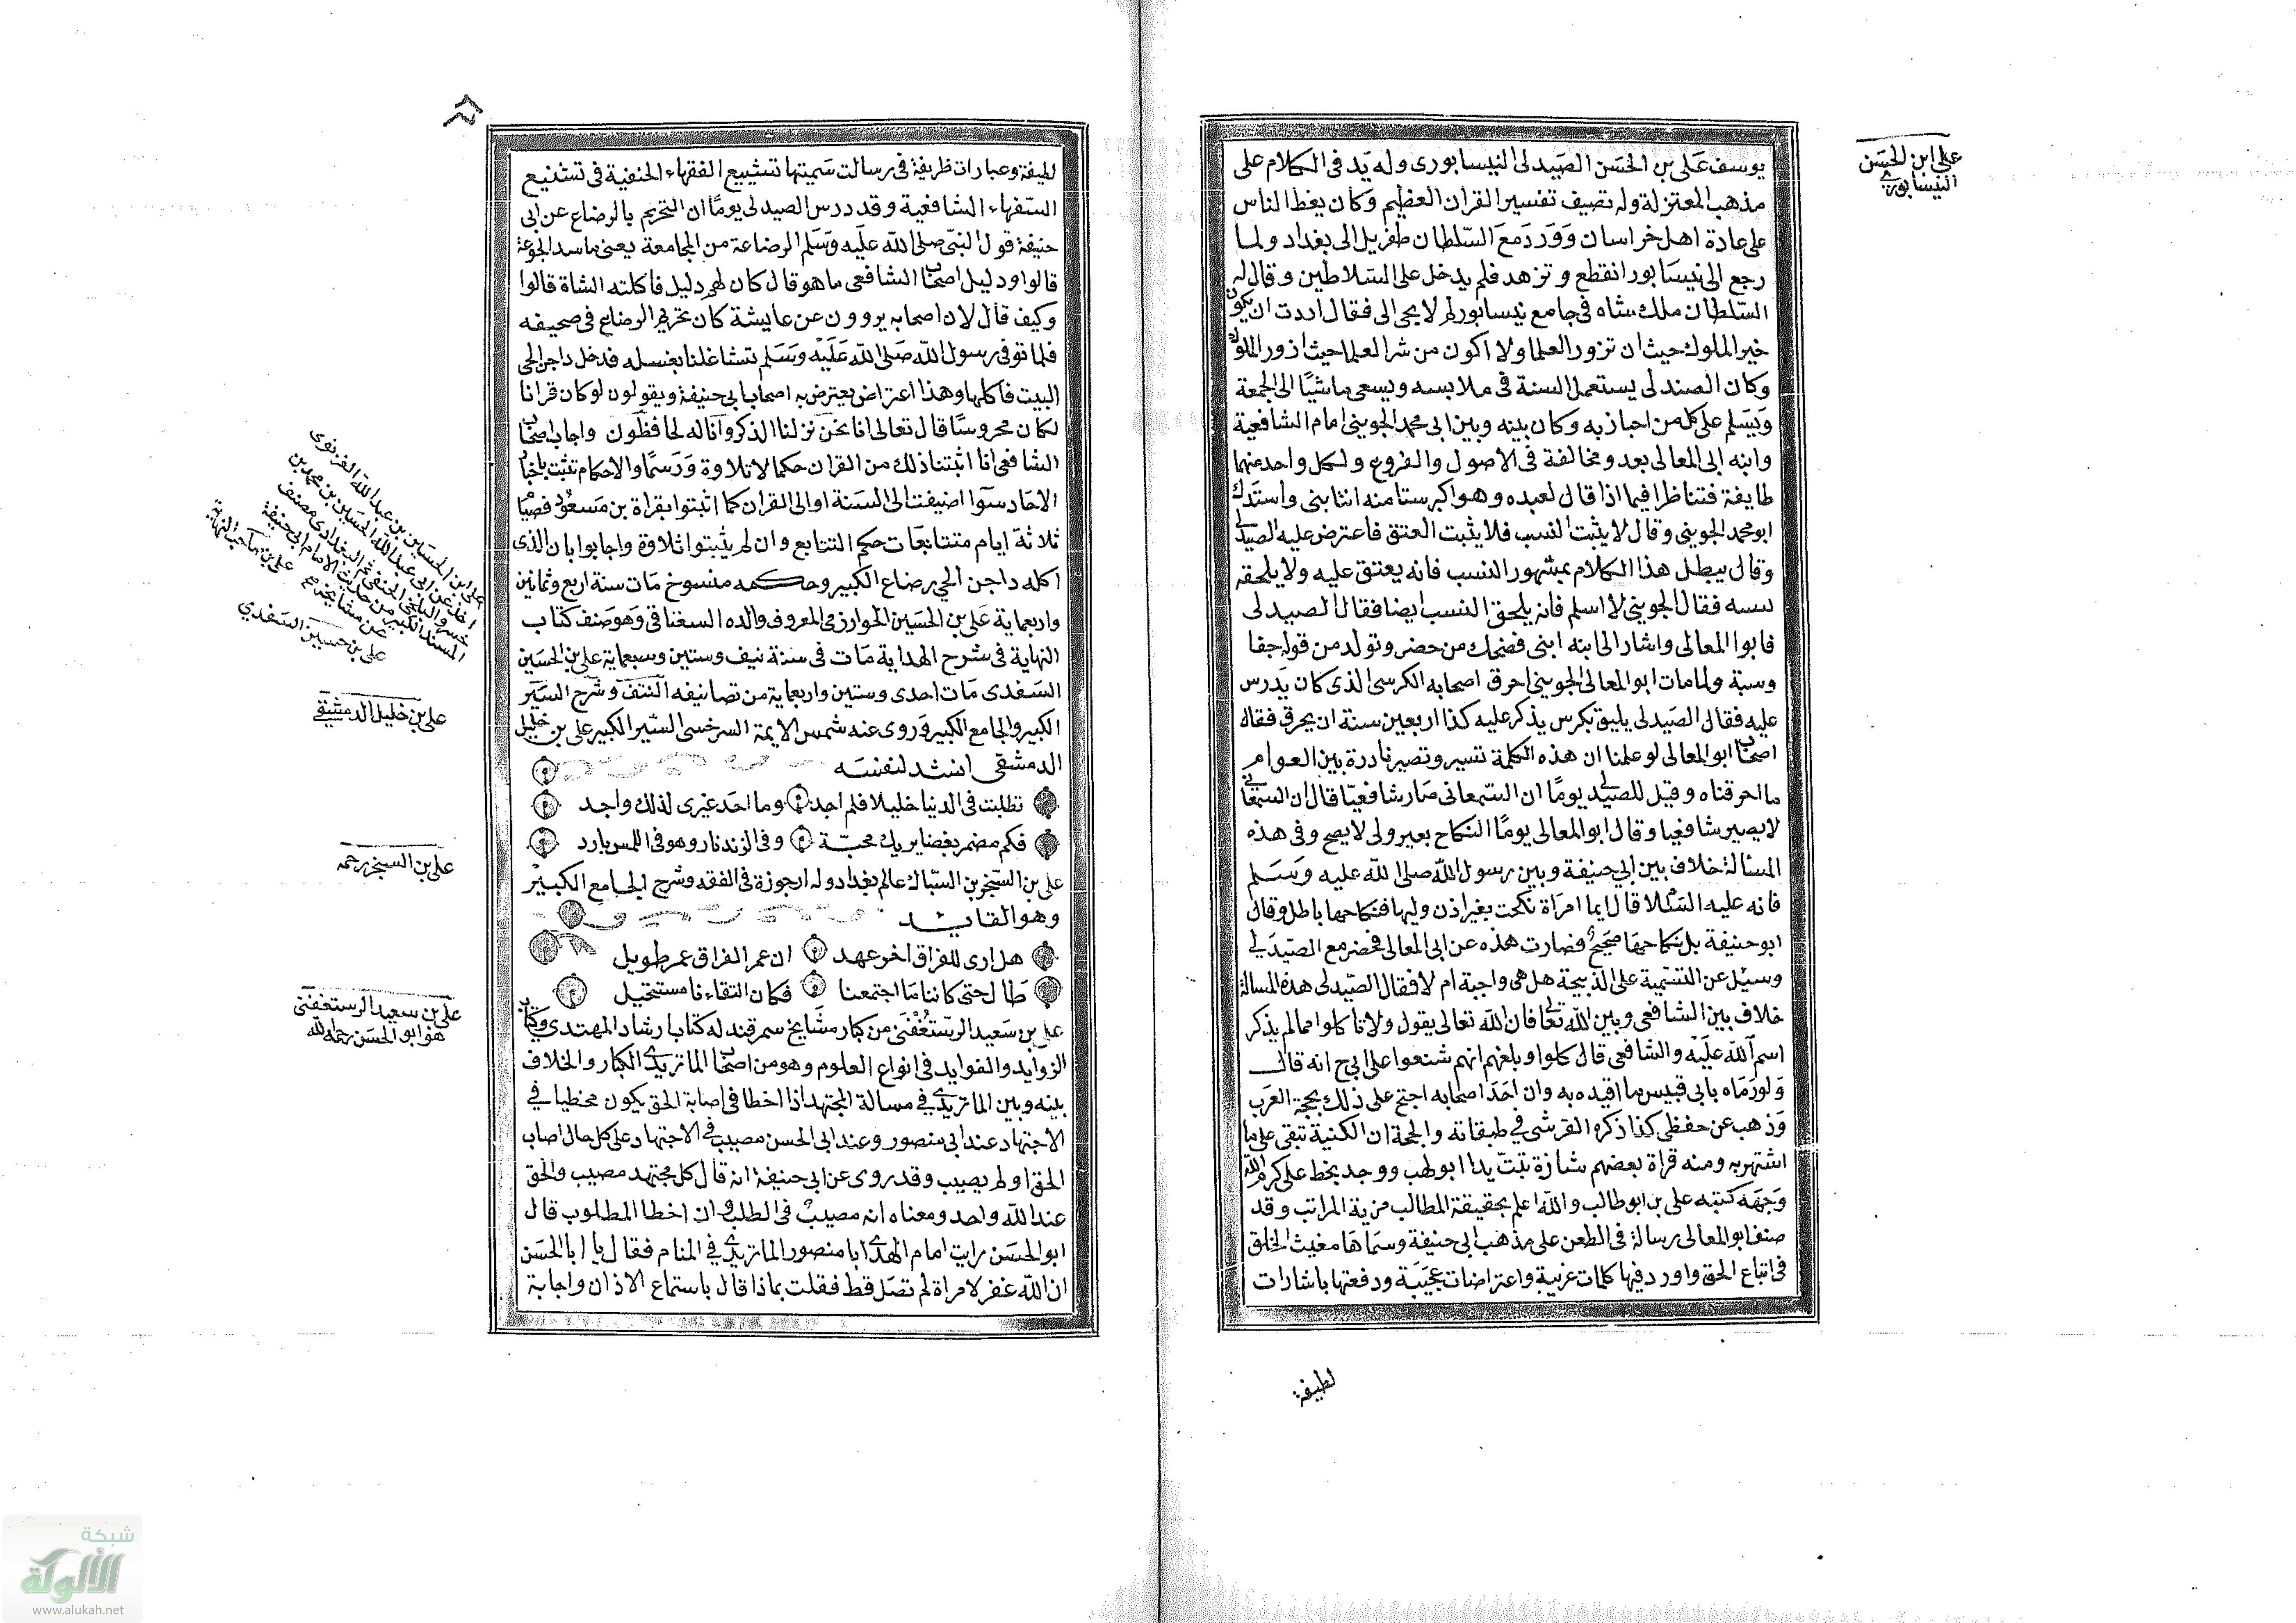 يوسف علي بن الحسن الصيدلى النيسابورى وله يد فى الكلام على
مذهب المعتزلة وله تصيف تفسير القران العظيم وكان يعظ الناس
على عادة اهل خراسان وورد مع السلطان طغريل الى بغداد ولما
رجع الى نيسابور انقطع وتزهد فلم يدخل على السلاطين وقال له
السلطان ملك شاه فى جامع نيسابور لم لا يجى الى فقال اردت ان يكون
خير الملوك حيث ان تزور العلما ولا اكون من شر العلما حيث ازور الملوك
وكان الصندلى يستعمل السنة فى ملابسه ويسعى ماشيا الى الجمعة
ويسلم على كل من اجاز به وكان بينه وبين ابى محمد الجوينى امام الشافعية
وابنه ابى المعالى بعد ومخالفة فى الاصول والفروع ولكل واحد منهما
طايفة فتناظرا فيما اذا قال لعبده وهو اكبر سنا منه انت ابنى واستدل
ابو محمد الجوينى وقال لا يثبت النسب فلا يثبت العتق فاعترض عليه الصيدلى
وقال يبطل هذا الكلام بمشهور النسب فانه يعتق عليه ولا يلحقه
نسبه فقال الجوينى لا اسلم فانه يلحق النسب ايضا فقال الصيدلى
فابوا المعالى واشار الى ابنه ابنى فضحك من حضر وتولد من قوله جفا
وسبة ولما مات ابو المعالى الجوينى احرق اصحابه الكرسى الذى كان يدرس
عليه فقال الصيدلى يليق بكرس يذكر عليه كذا اربعين سنة ان يحرق فقال
اصحاب ابو المعالى لو علمنا ان هذه الكلمة تسير وتصير نادرة بين العوام
ما احرقناه وقيل للصيدلى يوما ان السمعانى صار شافعيا قال ان السمعانى
لا يصير شافعيا وقال ابو المعالى يوما النكاح بغير ولى لا يصح وفى هذه
المسالة خلاف بين ابى حنيفة وبين رسول الله صلى الله عليه وسلم
فانه عليه السلام قال ايما امراة نكحت بغير اذن وليها فنكاحها باطل وقال
ابو حنيفة بل نكاحها صحيح فصارت هذه عن ابى المعالى فحضر مع الصيدلى
وسيل عن التسمية على الذبيحة هل هى واجبة ام لا فقال الصيدلى هذه المسالة
خلاف بين الشافعى وبين الله تعالى فان الله تعالى يقول ولا تاكلوا مما لم يذكر
اسم الله عليه والشافعى قال كلوا وبلغهم انهم شنعوا على ابى ح انه قال
ولو رماه بابى قبيس ما اقيده به وان احد اصحابه احتج على ذلك بحجة العرب
وذهب عن حفظى كذا ذكره القرشى فى طبقاته والحجة ان الكنية تبقى على ما
اشتهر به ومنه قراة بعضهم شازة تبت يدا ابو لهب ووجد بخط على كرم الله
وجهه كتبه على بن ابو طالب والله اعلم بحقيقة المطالب مزية المراتب وقد
صنف ابو المعالى رسالة فى الطعن على مذهب ابى حنيفة وسماها مغيث الخلق
فى اتباع الحق واورد فيها كلمات غريبة واعتراضات عجيبة ودفعتها باشارات
لطيفة
على ابن الحسن
النيسابورى
لطيفة وعبارات ظريفة فى رسالت سميتها تشييع الفقهاء الحنفية فى تشنيع
السفهاء الشافعية وقد درس الصيدلى يوما ان التحريم بالرضاع عن ابى
حنيفة قول النبى صلى الله عليه وسلم الرضاعة من المجامعة يعنى ما سد الجوعة
قالوا ودليل اصحاب الشافعى ما هو قال كان لهم دليل فاكلته الشاة قالوا
وكيف قال لان اصحابه يروون عن عايشة كان تحريم الرضاع فى صحيفه
فلما توفى رسول الله صلى الله عليه وسلم تشاغلنا بغسله فدخل داجن الحى
البيت فاكلها وهذا اعتراض يعترض به اصحاب ابى حنيفة ويقولون لو كان قرانا
لكان محروسا قال تعالى انا نحن نزلنا الذكر وانا له لحافظون واجاب اصحاب
الشافعى انا اثبتنا ذلك من القران حكما لا تلاوة ورسما والاحكام تثبت باخبار
الاحاد سوا اضيفت الى السنة او الى القران كما اثبتوا بقراة بن مسعود فصيام
ثلاثة ايام متتابعات حكم التتابع وان لم يثبتوا تلاوة واجابوا بان الذى
اكله داجن الحى رضاع الكبير وحكمه منسوخ مات سنة اربع وثمانين
واربعماية على بن الحسين الخوارزمى المعروف والده السغناقى وهو صنف كتاب
النهاية فى شرح الهداية مات فى سنة نيف وستين وسبعماية على بن الحسين
السغدى مات احدى وستين واربعماية من تصانيفه النتف وشرح السير
الكبير والجامع الكبير وروى عنه شمس الايمة السرخسى السير الكبير على بن خليل
الدمشقى انشد لنفسه
تطلبت فى الدنيا خليلا فلم اجد وما احد غيرى لذلك واجد
فكم مضمر بغضا يريك محبة وفى الزند نار وهو فى اللمس بارد
على بن السنجر بن السباك عالم بغداد وله ارجوزة فى الفقه وشرح الجامع الكبير
وهو القايد
هل ارى للفراق اخر عهد ان عمر الفراق عمر طويل
طال حتى كاننا ما اجتمعنا فكان التقاءنا مستحيل
على بن سعيد الرستغفنى من كبار مشايخ سمرقند له كتاب ارشاد المهتدى وكتاب
الزوايد والفوايد فى انواع العلوم وهو من اصحاب الماتريدى الكبار والخلاف
بينه وبين الماتريدى فى مسالة المجتهد اذا اخطا فى اصابة الحق يكون مخطيا فى
الاجتهاد عند ابى منصور وعند ابى الحسن مصيب فى الاجتهاد على كل حال اصاب
الحق او لم يصيب وقد روى عن ابى حنيفة انه قال كل مجتهد مصيب والحق
عند الله واحد ومعناه انه مصيب فى الطلب وان اخطا المطلوب قال
ابو الحسن رايت امام الهدى ابا منصور الماتريدى فى المنام فقال يا ابا الحسن
ان الله غفر لامراة لم تصل قط فقلت بماذا قال باستماع الاذان واجابة
على ابن الحسين بن عبد الله الغزنوى
اخذ عن ابى عبد الله الحسين بن محمد بن
خسرو البلخى الحنفى ثم البغدادى مصنف
المسند الكبير من حديث الامام ابى حنيفة
على بن حسين السغدى
على بن خليل الدمشقى
على بن السنجر رحمه
على بن سعيد الرستغفنى
هو ابو الحسن رحمه الله
شبكة
الألوكة
www.alukah.net